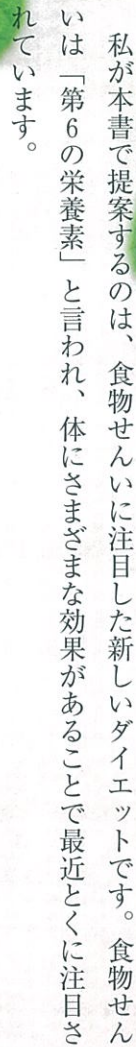 私が本書で提案するのは、食物せんいに注目した新しいダイエットです。食物せん
いは「第6の栄養素」と言われ、体にさまざまな効果があることで最近とくに注目さ
れています。